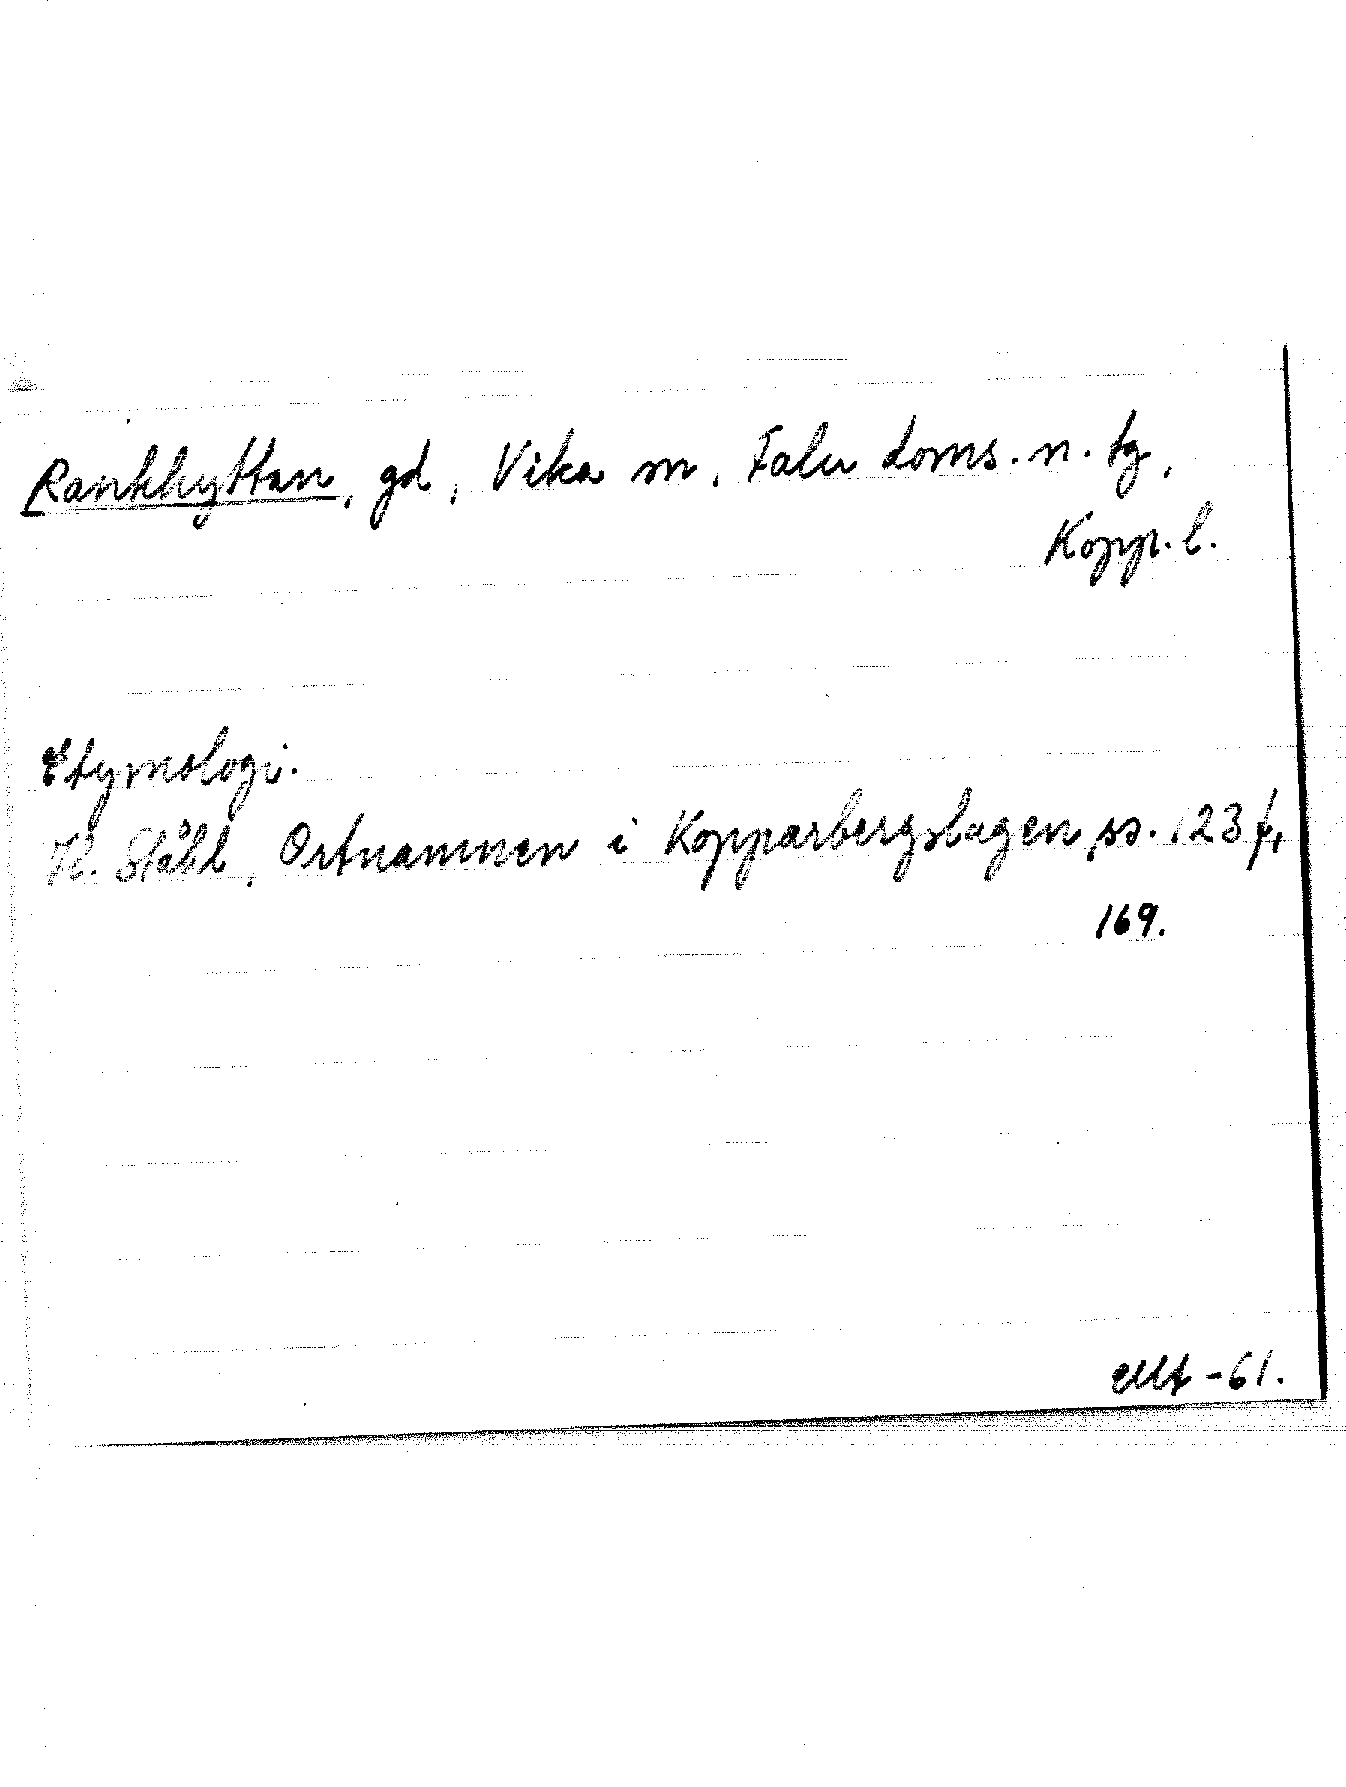 Rankhyttan, gd, Vika sn, Falu doms. n. tg,
Kopp. l.
Etymologi.
H. Ståhl, Ortnamnen i Kopparbergslagen, ss. 123 f,
169.
-61.